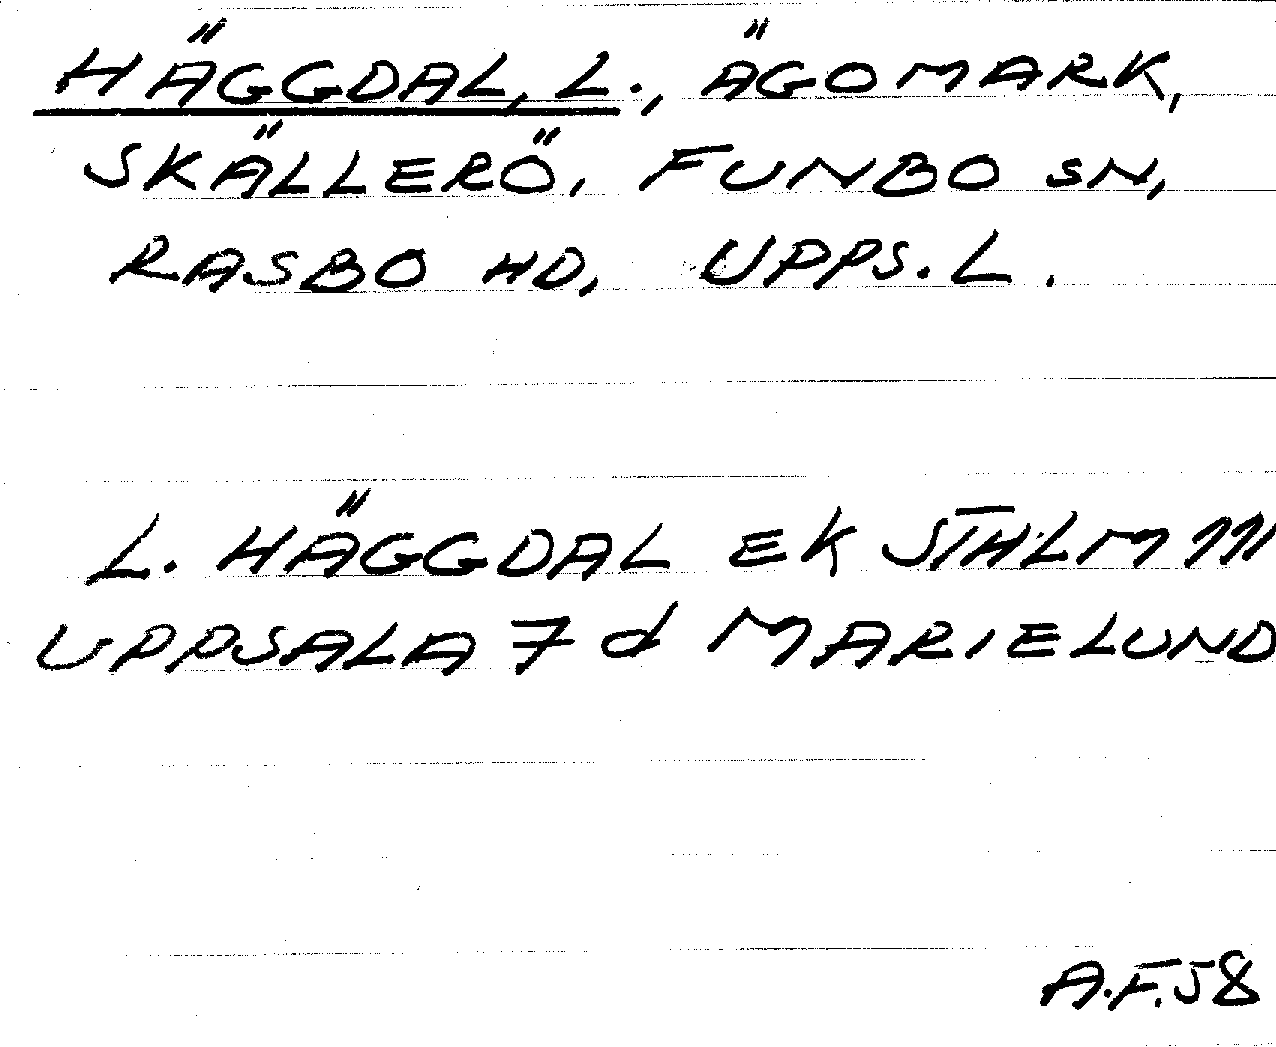 HÄGGDAL, L., ÄGOMARK,
SKÄLLERÖ, FUNBO SN,
RASBO HD, UPPS. L.
L. HÄGGDAL EK STHLM 111
UPPSALA 7 d MARIELUND
A.F. 58